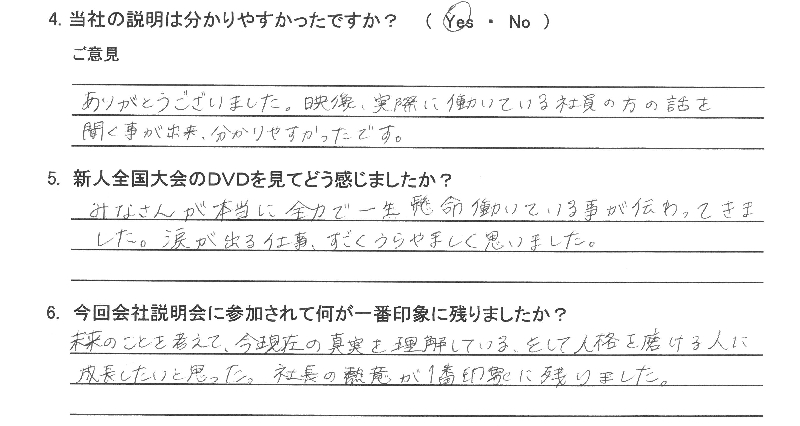 4. 当社の説明は分かりやすかったですか？ （ Yes ・ No ）
ご意見
ありがとうございました。映像、実際に働いている社員の方の話を
聞く事が出来、分かりやすかったです。
5. 新人全国大会のDVDを見てどう感じましたか？
みなさんが本当に全力で一生懸命働いている事が伝わってきま
した。涙が出る仕事、すごくうらやましく思いました。
6. 今回会社説明会に参加されて何が一番印象に残りましたか？
未来のことを考えて、今現在の真実を理解している、そして人格を磨ける人に
成長したいと思った。社長の熱意が1番印象に残りました。